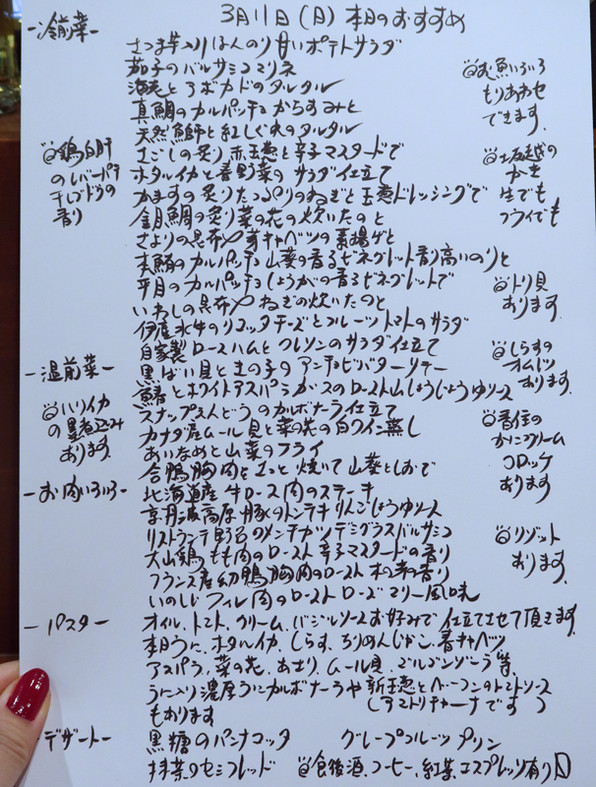 3月11日(日)本日のおすすめ
-冷前菜-
さつま芋入りほんのり甘いポテトサラダ
茄子のバルサミコマリネ
海老とアボカドのタルタル
真鯛のカルパッチョ からすみと
天然鰤と紅しぐれのタルタル
さごしの炙り 赤玉葱と辛子マスタードで
ホタルイカと春野菜の サラダ仕立て
かますの炙り たっぷりのねぎと玉葱ドレッシングで
金目鯛の炙り 菜の花の炊いたのと
さよりの昆布〆 芽キャベツの素揚げと
本鮪のカルパッチョ 山葵の香るビネグレット 香り高いのりと
平目のカルパッチョ しょうがの香るビネグレットで
いわしの昆布〆 ねぎの炊いたのと
伊産水牛のリコッタチーズとフルーツトマトのサラダ
自家製 ロースハムとクレソンのサラダ仕立て
◎鶏白肝
のレバーパテ
干しブドウの
香り
◎お魚いろいろ
もりあわせ
できます。
◎上品越の
かき
生でも
フライでも
◎トリ貝
あります。
-温前菜-
黒ばい貝ときの子のアンチョビバターソテー
鰆とホワイトアスパラガスのロースト 山しょうしょうゆソース
スナップえんどうのカルボナーラ仕立て
カナダ産ムール貝と菜の花の白ワイン蒸し
あいなめと山菜のフライ
合鴨胸肉をさっと焼いて 山葵としおで
◎ハリイカ
の墨煮込み
あります。
◎しらすの
オムレツ
あります。
◎香住の
かにクリーム
コロッケ
あります
-お肉いろいろ-
北海道産 牛ロース肉のステーキ
京丹波高原豚のトンテキ りんごしょうゆソース
リストランテ野呂のメンチカツ デミグラスバルサミコ
大山鶏もも肉のロースト 辛子マスタードの香り
フランス産幼鴨胸肉のロースト 木の芽の香り
いのししフィレ肉のロースト ローズマリー風味
◎リゾット
あります。
-パスタ-
オイル、トマト、クリーム、バジルソースお好みで仕立てさせて頂きます。
本日うに、ホタルイカ、しらす、ちりめんじゃこ、春キャベツ
アスパラ、菜の花、あさり、ムール貝、ゴルゴンゾーラ等、
うに入り濃厚うにカルボナーラや 新玉葱とベーコンのトマトソース
もあります (アマトリチャーナです)
デザート-
黒糖のパンナコッタ グレープフルーツ プリン
抹茶のセミフレッド ◎食後酒、コーヒー、紅茶、エスプレッソ有り